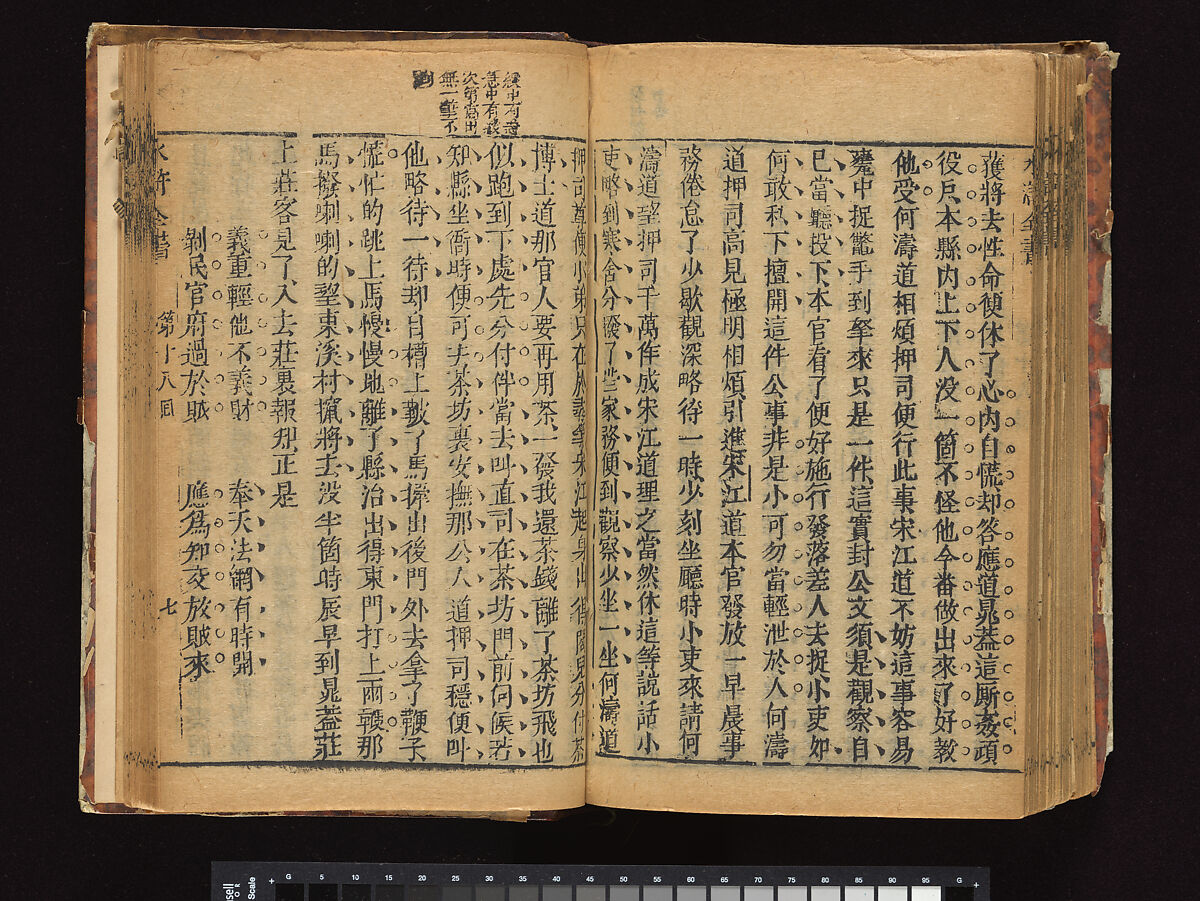 獲將去性命便休了心內自慌却答應道晁蓋這厮姦頑
役戶本縣內上下人没一箇不怪他今番做出來了好教
他受何濤道相煩押司便行此事宋江道不妨這事容易
甕中捉鱉手到拏來只是一件這實封公文須是觀察自
己當聽投下本官看了便好施行發落差人去捉小吏如
何敢私下擅開這件公事非是小可勿當輕泄於人何濤
道押司高見極明相煩引進宋江道本官發放一早晨事
務倦怠了少歇觀深略待一時少刻坐廳時小吏來請何
濤道望押司千萬作成宋江道理之當然休這等說話小
吏略到寒舍分撥了些家務便到觀察少坐一坐何濤道
押司尊便小弟只在此
宋江起身出得閣兒分付茶
博士道那官人要再用茶一發我還茶錢離了茶坊飛也
似跑到下處先分付伴當去叫直司在茶坊門前伺候若
知縣坐衙時便可去茶坊裏安撫那公人道押司穩便叫
他略待一待却自槽上鞁了馬牽出後門外去拿了鞭子
慌忙的跳上馬慢慢地離了縣治出得東門打上兩鞭那
馬撥喇喇的望東溪村攛將去没半箇時辰早到晁蓋莊
上莊客見了入去莊裏報知正是
義重輕他不義財 奉天法網有時開
剝民官府過於賊 應爲知交放賊來
水滸全書 第十八回 七
水滸全書